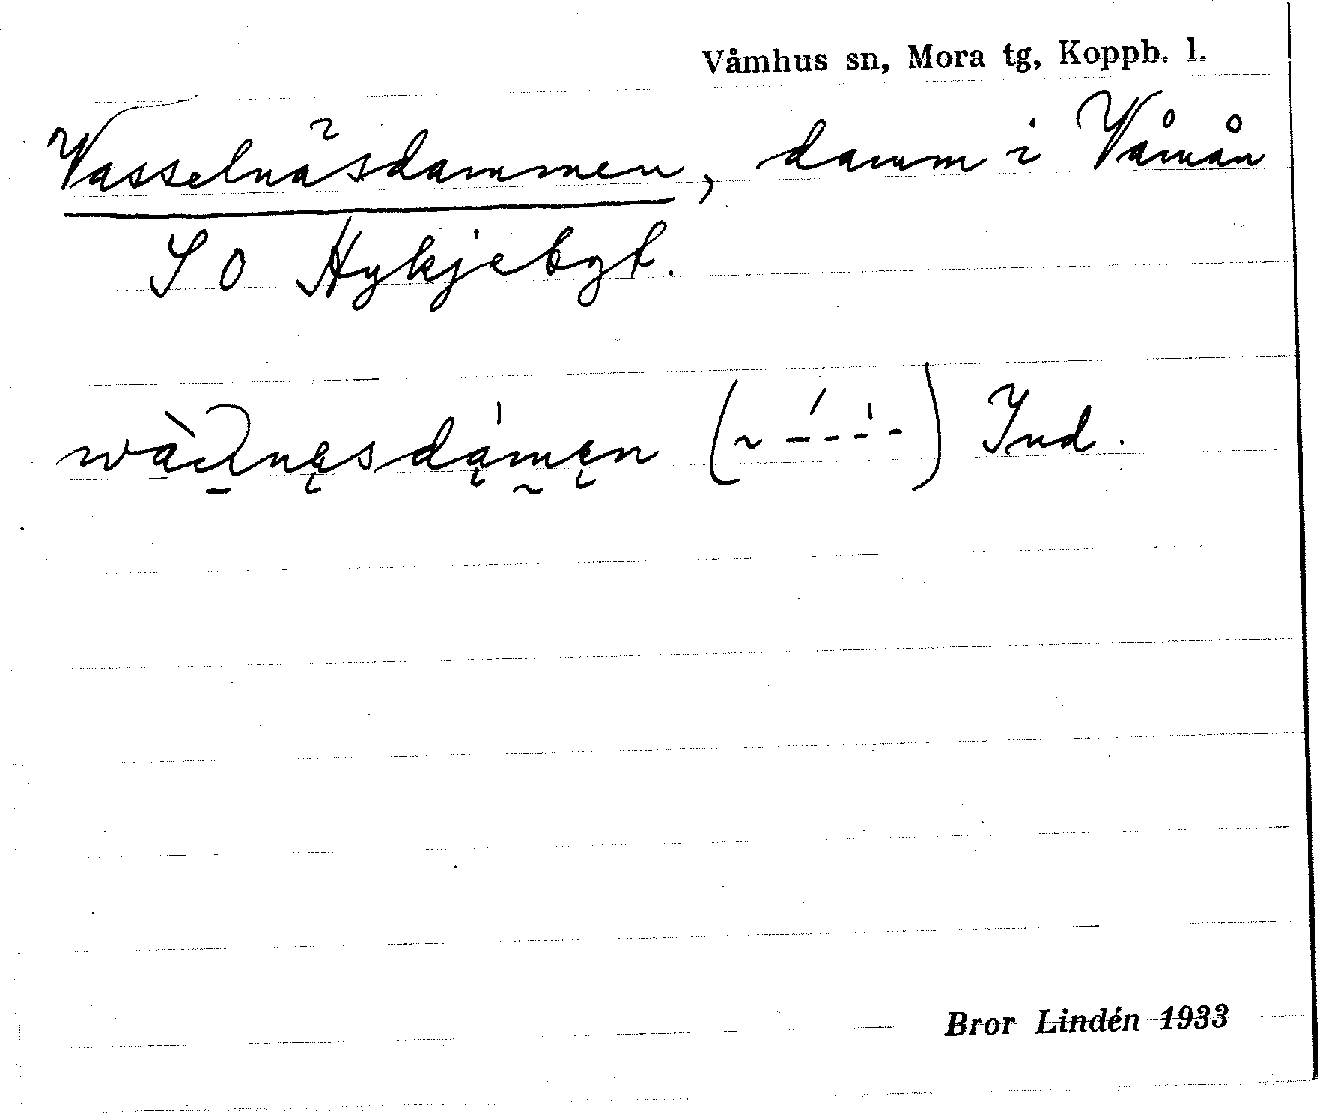 Våmhus sn, Mora tg, Koppb. l.
Vasselnäsdammen, damm i Våmån
SO Hykjebyt.
Ind.
Bror Lindén 1933